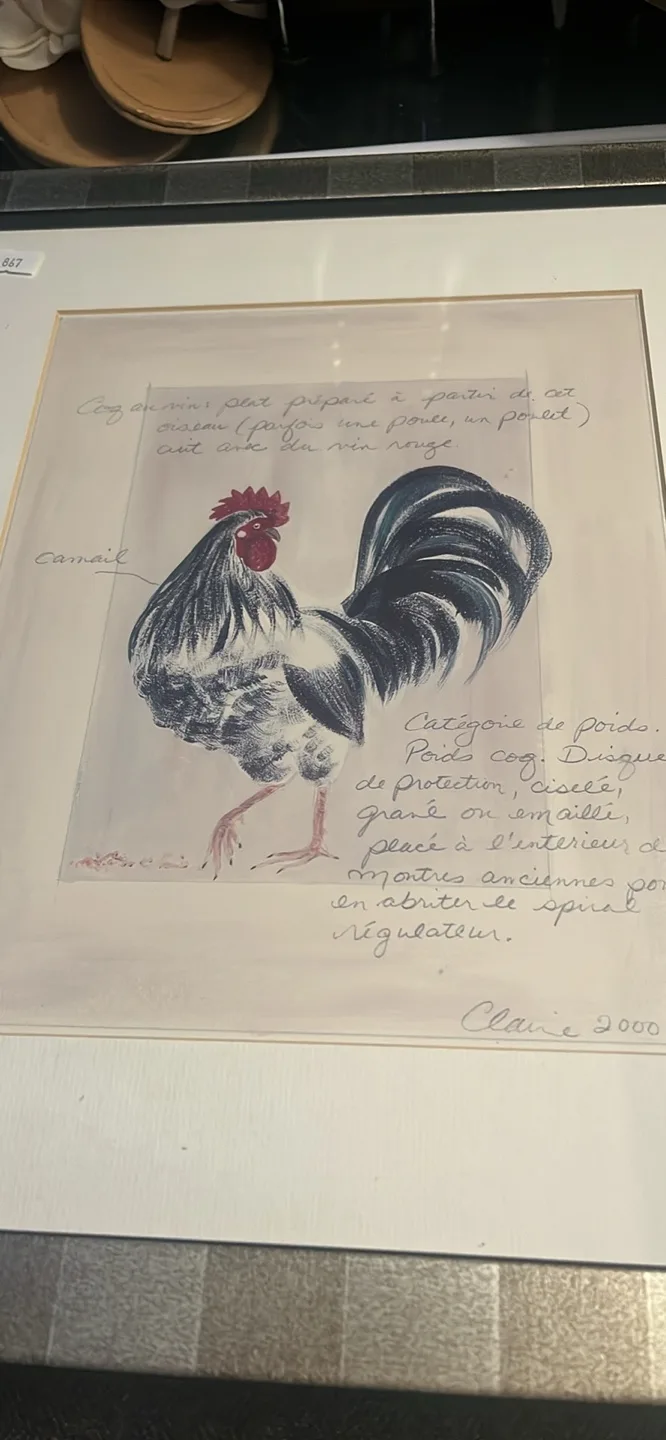 867
Coq au vin: plat préparé à partir de cet
oiseau (parfois une poule, un poulet)
cuit avec du vin rouge.
camail
Catégorie de poids.
Poids coq. Disque
de protection, ciselé,
gravé ou emaillé,
placé à l'interieur d
montres anciennes po
en abriter le spiral
régulateur.
Claire 2000